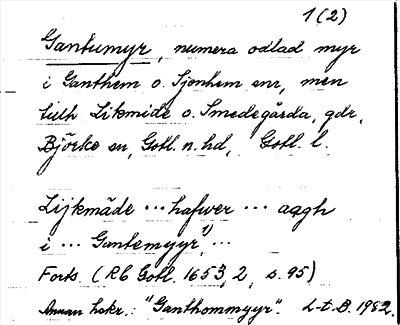 1(2)
Gantumyr, numera odlad myr
i Ganthem o. Sjonhem snr, men
tillh Likmide o. Smedegårda, gdr,
Björke sn, Gotl. n. hd, Gotl. l.
Lijkmåde ... hafwer ... aggh
i ... Gantemyyr,1) ...
Forts. (Rb Gotl. 1653, 2, s. 95)
Annan hskr.: "Ganthommyyr". L-t. B. 1982.